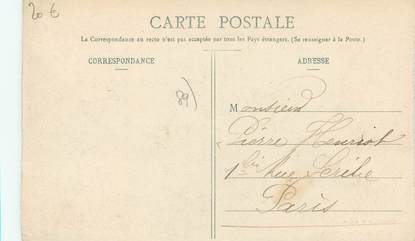 20 €
CARTE POSTALE
La Correspondance au recto n'est pas acceptée par tous les Pays étrangers. (Se renseigner à la Poste.)
CORRESPONDANCE
ADRESSE
89)
Monsieur
Pierre Henriot
1 bis Rue Scribe
Paris